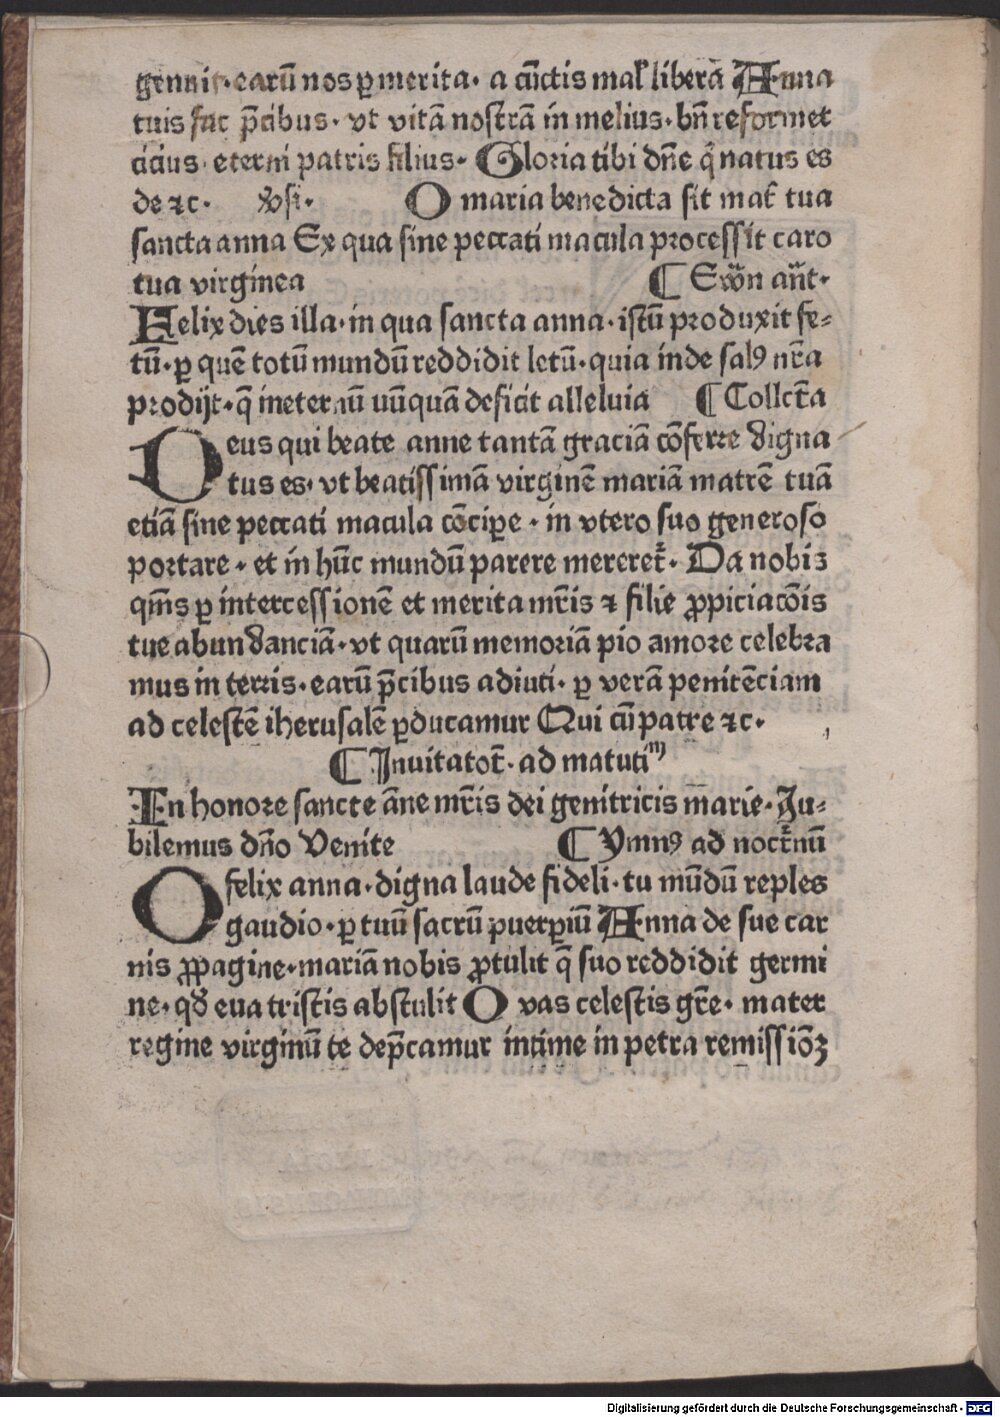 gennit· earū nos ꝑ merita· a cūctis mal̕ libera Anna
tuis fac p̄cibus· vt vitā nostrā in melius· bn̄ reformet
cicius· eterni patris filius· Gloria tibi dn̄e q̄ natus es
de ⁊c· O maria benedicta sit mat̕ tua
sancta anna Ex qua sine peccati macula processit caro
tua virginea ¶ an̄t·
Felix dies illa· in qua sancta anna· istū produxit fe-
tū· ꝑ quē totū mundū reddidit letū· quia inde salꝰ nr̄a
prodijt· q̄ in eternū nūquā deficit alleluia ¶ Collct̄a
Deus qui beate anne tantā graciā cōferre digna
tus es· vt beatissimā virginē mariā matrē tuā
etiā sine peccati macula cōcipe· in vtero suo generoso
portare· et in hūc mundū parere mereret̕· Da nobis
qm̄s ꝑ intercessionē et merita mr̄is ⁊ filie ꝓpiciacōis
tue abundanciā· vt quarū memoriā pio amore celebra
mus in terris· earū p̄cibus adiuti· ꝑ verā penitēciam
ad celestē iherusalē ꝑducamur Qui cū patre ⁊c·
¶ Inuitator̄· ad matuti
In honore sancte āne mr̄is dei genitricis marie· Iu-
bilemus dn̄o Venite ¶ Ymnꝰ ad noct̕nū
O felix anna· digna laude fideli· tu mūdū reples
gaudio· ꝑ tuū sacrū puerꝑiū Anna de sue car
nis ꝓpagine· mariā nobis ꝓtulit q̄ suo reddidit germi
ne· qđ eua tristis abstulit O vas celestis gr̄e· mater
regine virginū te dep̄camur intime in petra remissiōꝫ
Digitalisierung gefördert durch die Deutsche Forschungsgemeinschaft - DFG